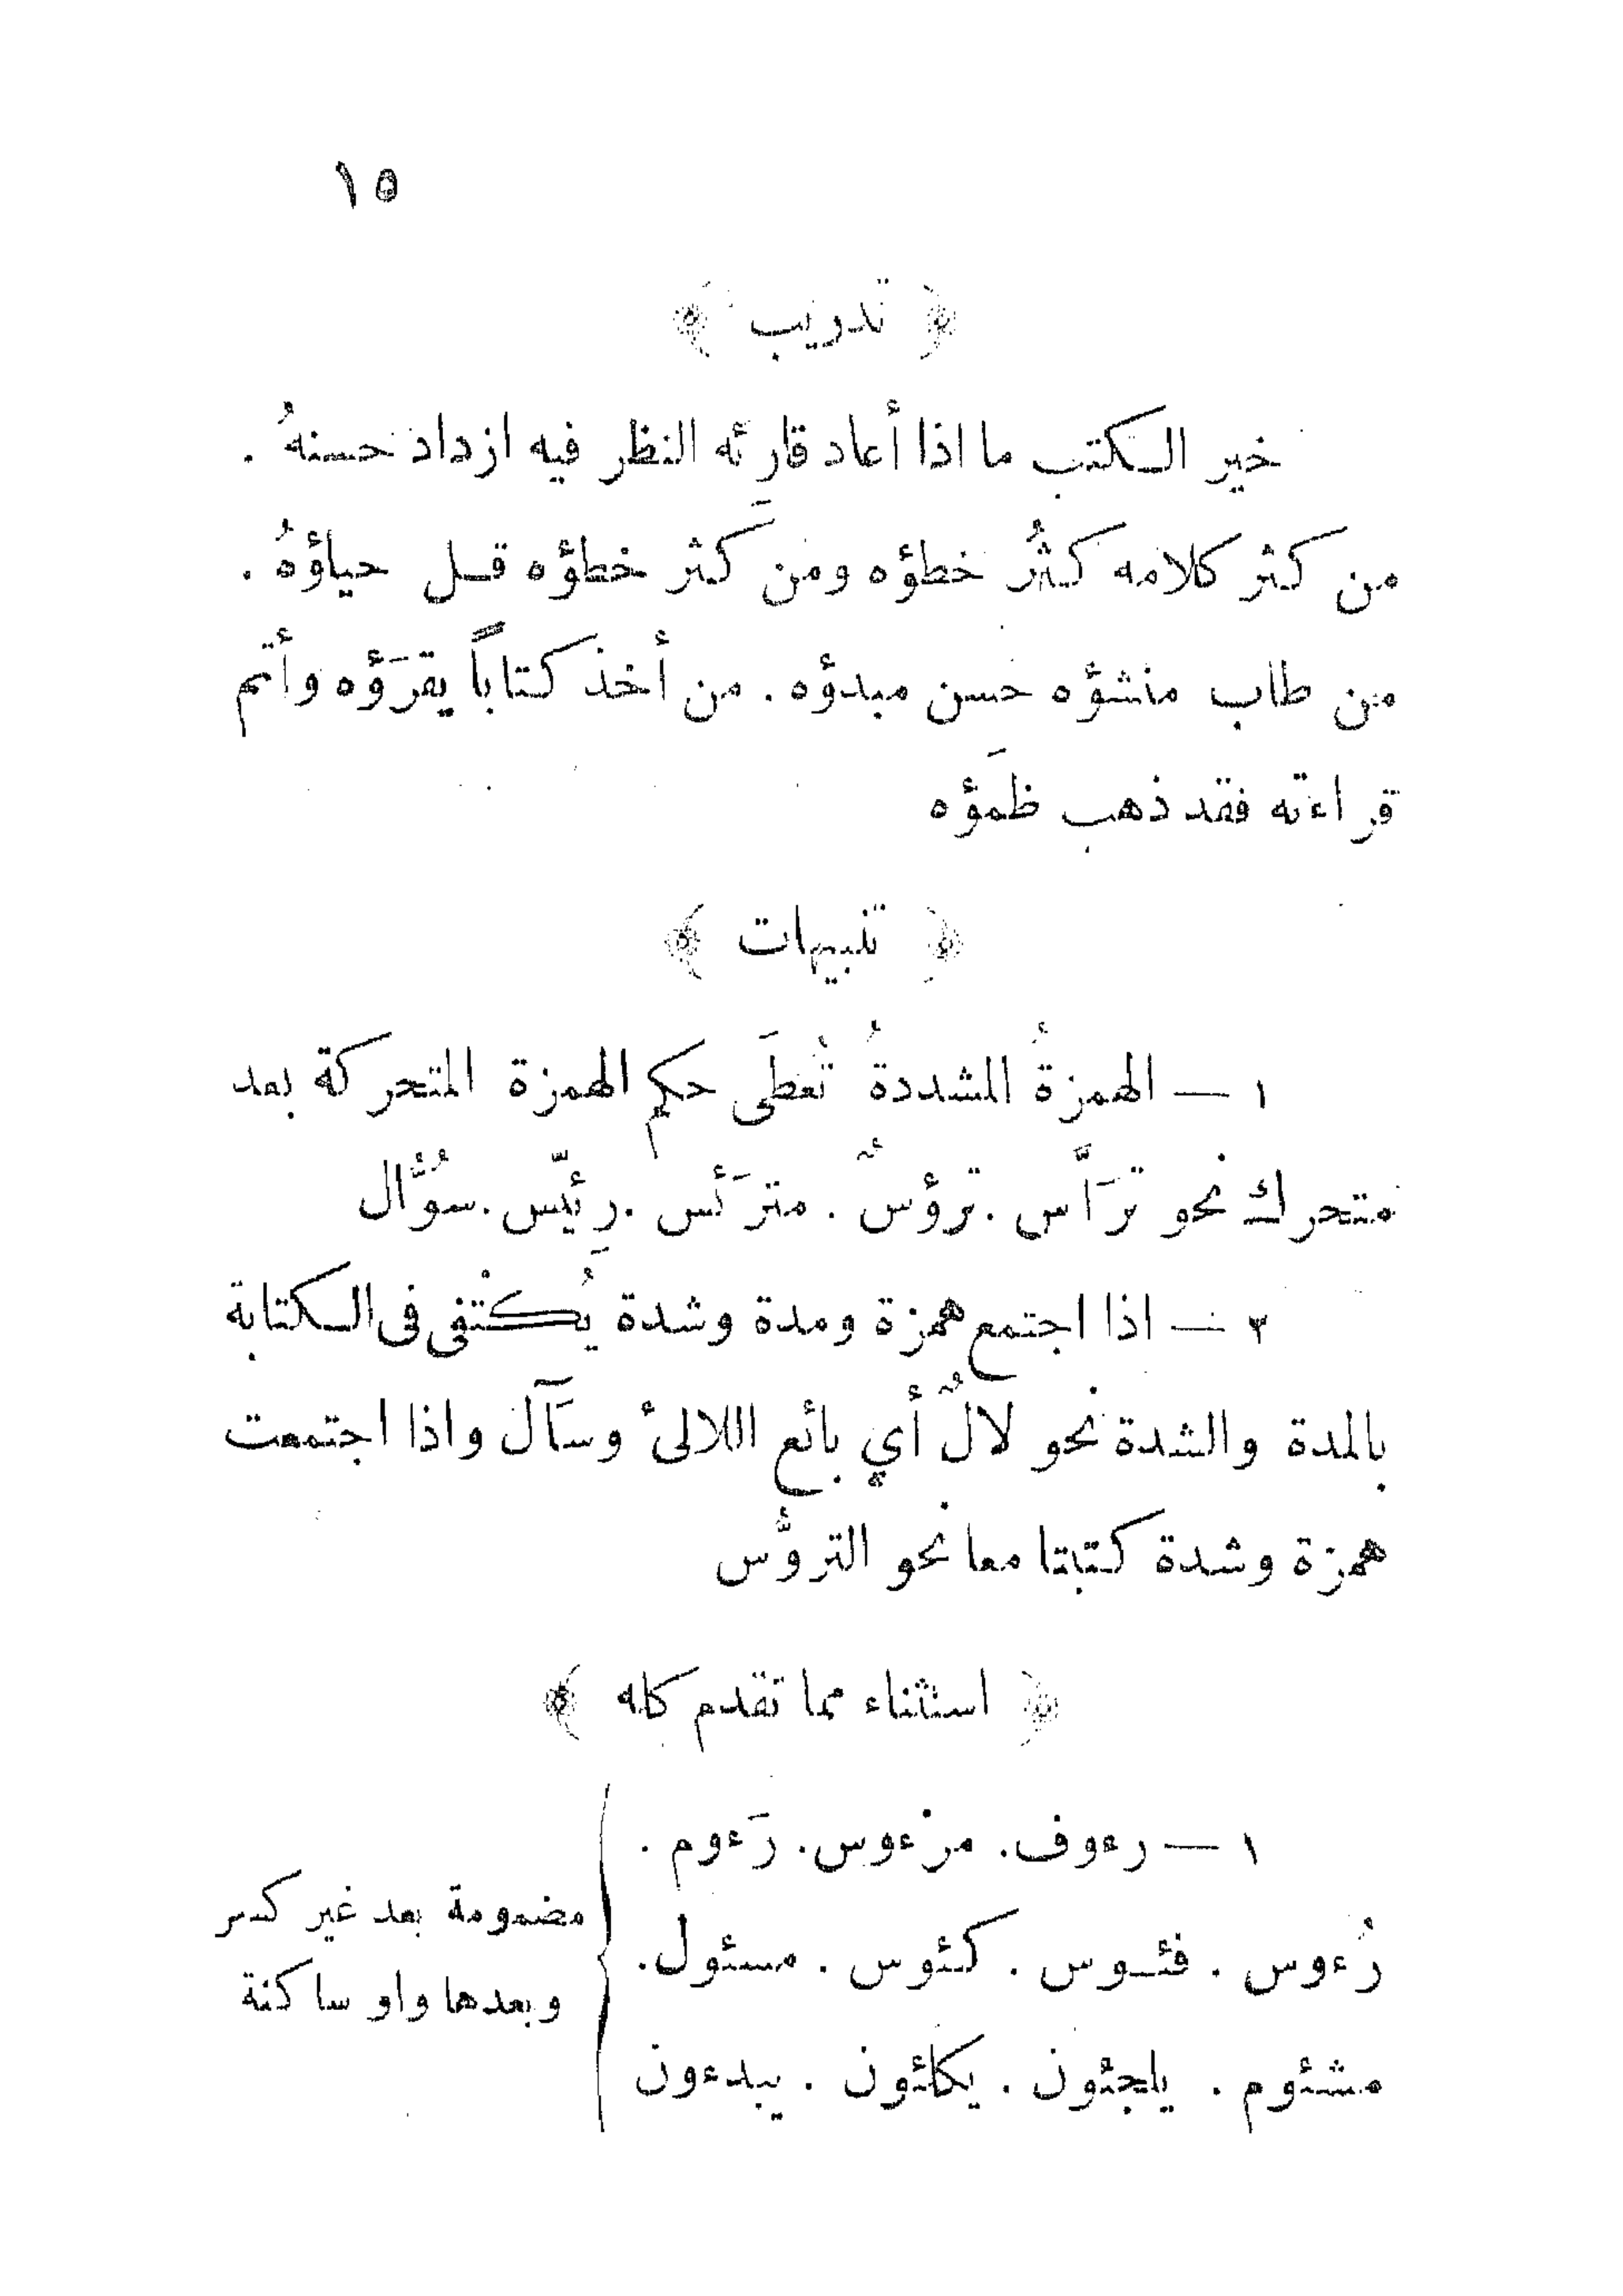 ١٥
﴿ تدريب ﴾
خير الكتب ما اذا أعاد قارِئه النظر فيه ازداد حسنهُ .
من كثر كلامه كثُر خطؤه ومن كَثر خطؤه قل حياؤهُ .
من طاب منشؤه حسن مبدؤه . من أخذ كتاباً يقرَؤه وأتم
قراءته فقد ذهب ظمَؤه
﴿ تنبيهات ﴾
١ — الهمزةُ المشددةُ تُعطَى حكم الهمزة المتحركة بعد
متحرك نحو ترَأَّس . ترؤسٌ . مترَئس . رِئيّس . سُؤَّال
٢ — اذا اجتمع همزة ومدة وشدة يُكتْفى فى الكتابة
بالمدة والشدة نحو لآلٌ أي بائع اللالئ وسآَّل واذا اجتمعت
همزة وشدة كتبتا معا نحو الترؤُّس
﴿ استثناء مما تقدم كله ﴾
١ — رءوف . مرْءوس . رَءوم .
رُءوس . فئوس . كئوس . مسئول .
مشئوم . يلجئون . يكلئون . يبدءون
مضمومة بعد غير كسر
وبعدها واو ساكنة